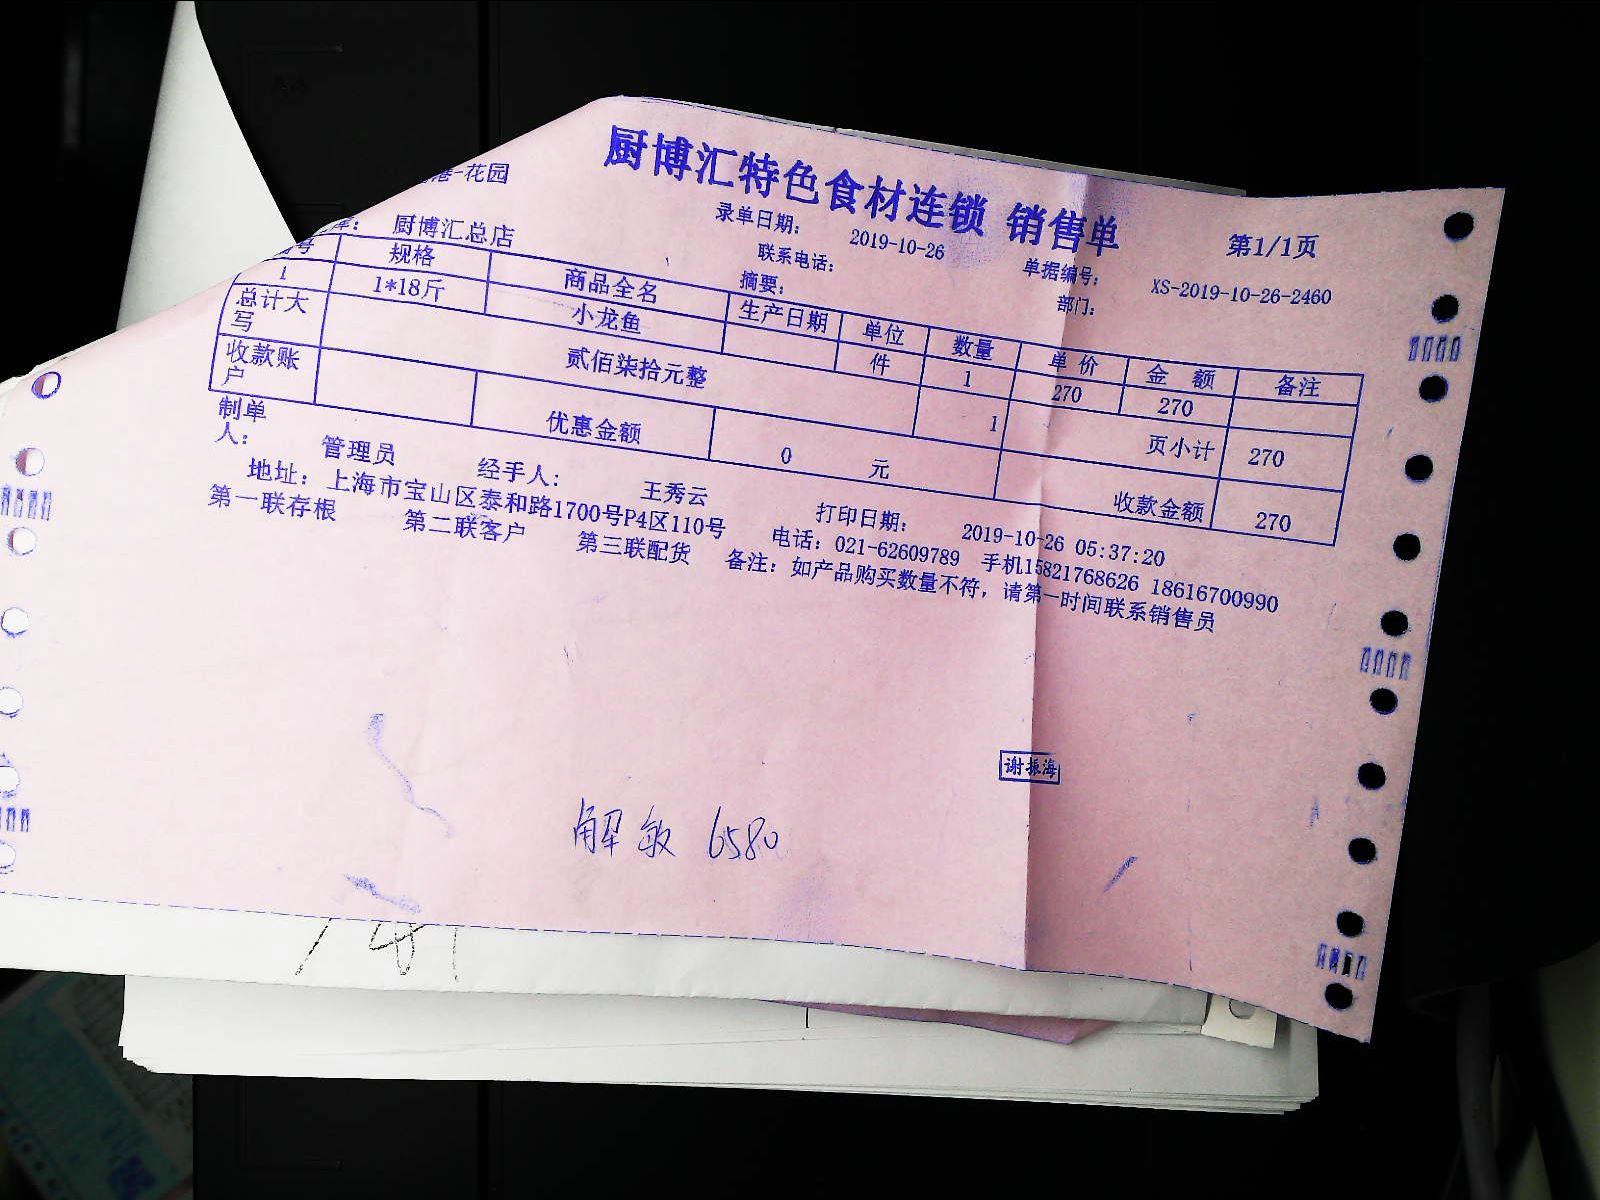 厨博汇特色食材连锁 销售单
第1/1页
港-花园
录单日期： 2019-10-26
单据编号： XS-2019-10-26-2460
库： 厨博汇总店
联系电话：
部门：
摘要：
号 规格 商品全名 生产日期 单位 数量 单价 金额 备注
1 1*18斤 小龙鱼 件 1 270 270
总计大写 贰佰柒拾元整 1 页小计 270
收款账户 优惠金额 0 元 收款金额 270
制单人： 管理员 经手人： 王秀云 打印日期： 2019-10-26 05:37:20
地址：上海市宝山区泰和路1700号P4区110号 电话：021-62609789 手机15821768626 18616700990
第一联存根 第二联客户 第三联配货 备注：如产品购买数量不符，请第一时间联系销售员
谢振海
解敏 6580